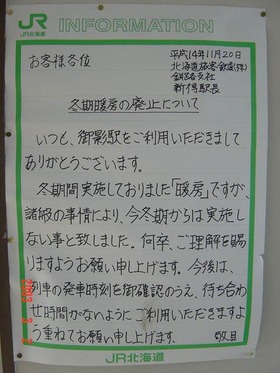 JR INFORMATION
JR北海道
お客様各位
平成14年11月20日
北海道旅客鉄道(株)
釧路支社
新得駅長
冬期暖房の廃止について
いつも、御影駅をご利用いただきまして
ありがとうございます。
冬期間実施しておりました「暖房」ですが、
諸般の事情により、今冬期からは実施し
ない事と致しました。何卒、ご理解を賜
りますようお願い申し上げます。今後は、
列車の発車時刻を御確認のうえ、待ち合わ
せ時間がないようにご利用いただきますよ
う重ねてお願い申し上げます。 敬具
JR北海道